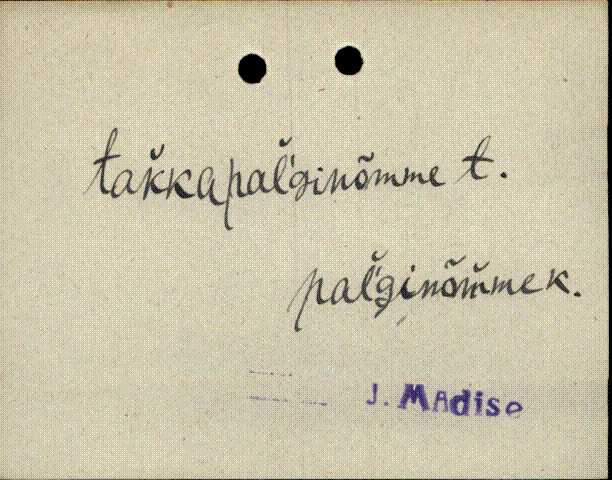 tak̆kapal̆'ginõmme t.
pal̆'ginõm̆mek.
J. MAdise